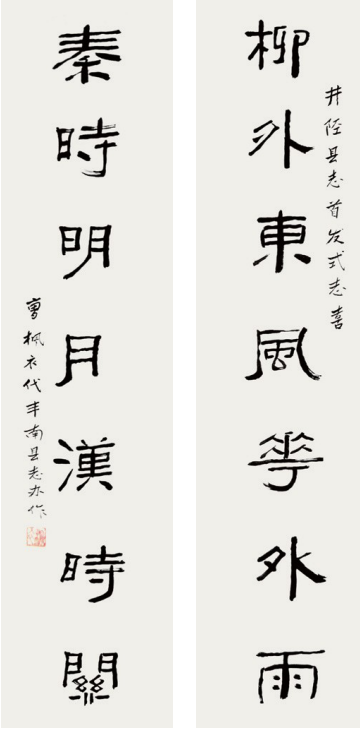 井陉县志首发式志喜
柳外東風華外雨
秦時明月漢時關
曹枫衣代丰南县志办作